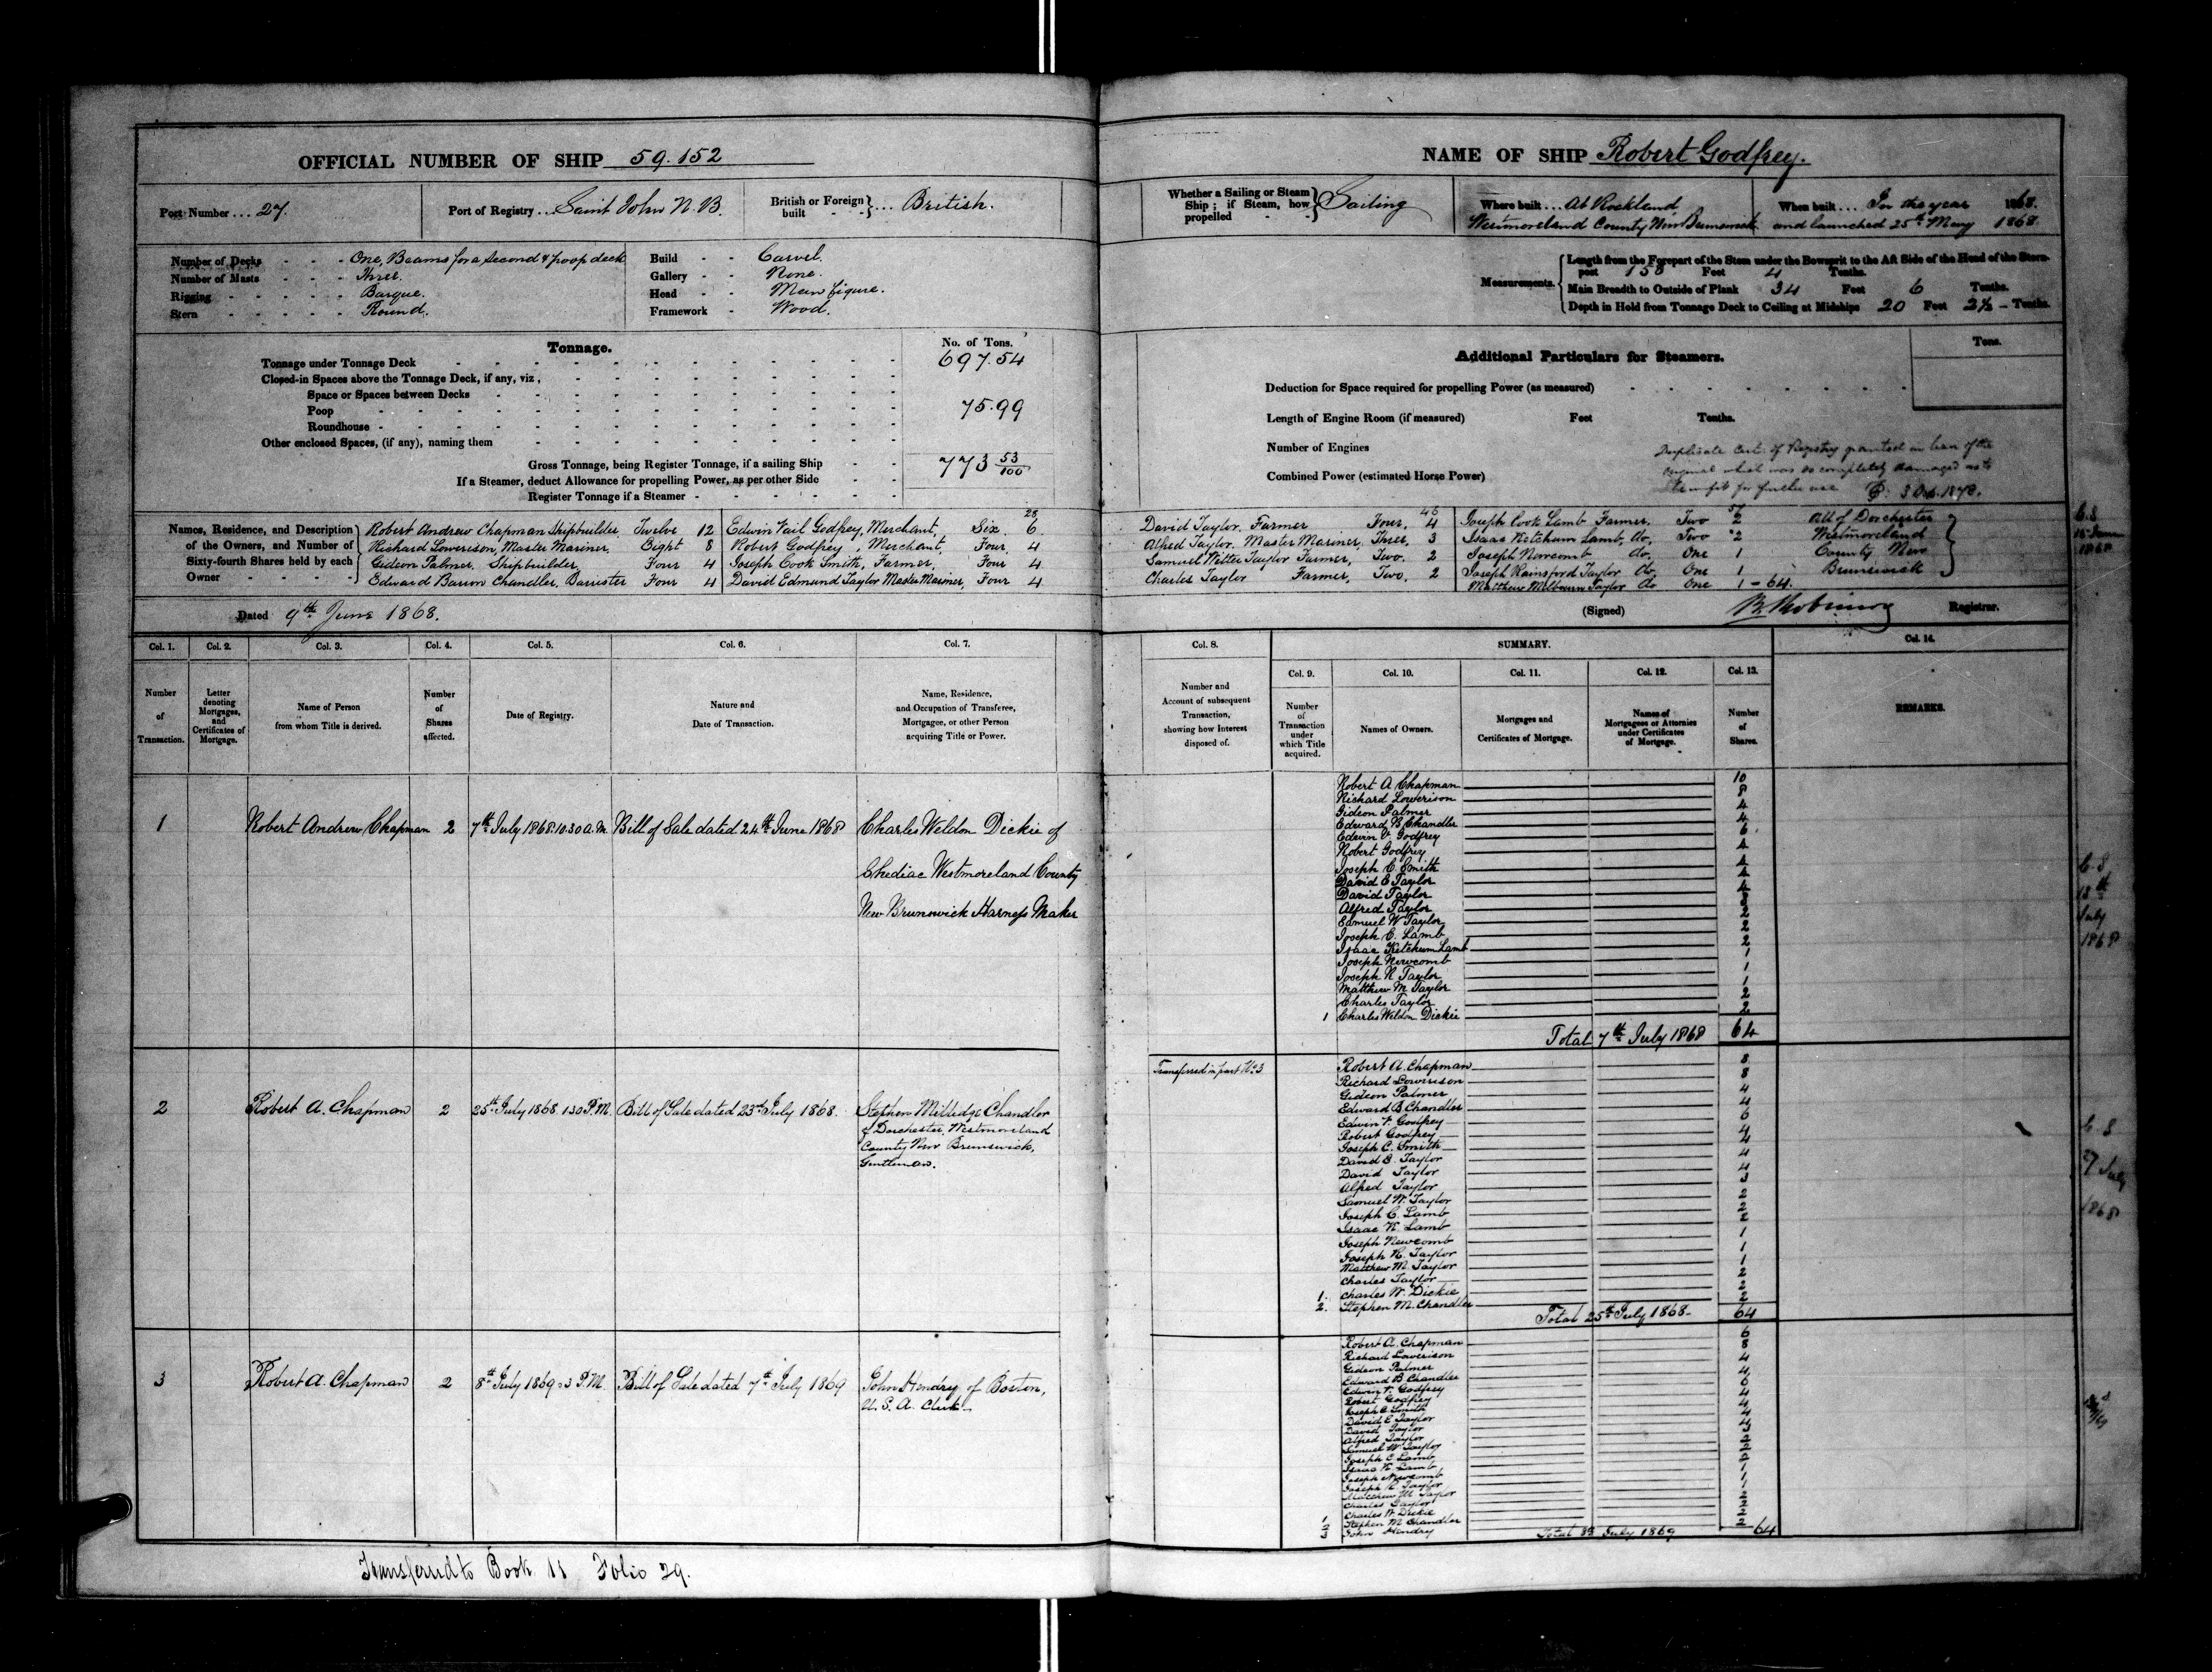 OFFICIAL NUMBER OF SHIP 59.152
Port Number ... 27.
Port of Registry ... Saint John N.B.
British or Foreign built - - } ... British.
Number of Decks - - - One, Beams for a second & poop deck
Number of Masts - - - Three.
Rigging - - - - - Barque.
Stern - - - - - Round.
Build - - Carvel.
Gallery - - None.
Head - - Man figure.
Framework - Wood.
Tonnage.
No. of Tons.
Tonnage under Tonnage Deck 697.54
Closed-in Spaces above the Tonnage Deck, if any, viz,
Space or Spaces between Decks
Poop 75.99
Roundhouse
Other enclosed Spaces, (if any), naming them
Gross Tonnage, being Register Tonnage, if a sailing Ship 773 53/100
If a Steamer, deduct Allowance for propelling Power, as per other Side
Register Tonnage if a Steamer
Names, Residence, and Description of the Owners, and Number of Sixty-fourth Shares held by each Owner
28
Robert Andrew Chapman Shipbuilder, Twelve 12
Richard Lowerison, Master Mariner, Eight 8
Gideon Palmer, Shipbuilder, Four 4
Edward Baron Chandler, Barrister Four 4
Edwin Vail Godfrey, Merchant, Six 6
Robert Godfrey, Merchant, Four 4
Joseph Cook Smith, Farmer, Four 4
David Edmund Taylor Master Mariner, Four 4
Dated 9th June 1868.
Col. 1. Col. 2. Col. 3. Col. 4. Col. 5. Col. 6. Col. 7.
Number of Transaction.
Letter denoting Mortgages, and Certificates of Mortgage.
Name of Person from whom Title is derived.
Number of Shares affected.
Date of Registry.
Nature and Date of Transaction.
Name, Residence, and Occupation of Transferee, Mortgagee, or other Person acquiring Title or Power.
1 Robert Andrew Chapman 2 7th July 1868 10.30 A.M. Bill of Sale dated 24th June 1868 Charles Weldon Dickie of
Chediac Westmoreland County
New Brunswick Harness Maker
2 Robert A. Chapman 2 25th July 1868 1.30 P.M. Bill of Sale dated 23rd July 1868. Stephen Millidge Chandler
of Dorchester, Westmoreland
County New Brunswick,
Gentleman.
3 Robert A. Chapman 2 8th July 1869 3 P.M. Bill of Sale dated 7th July 1869 John Hendry of Boston,
U.S.A. Clerk
Transferred to Book 11 Folio 29.
NAME OF SHIP Robert Godfrey.
Whether a Sailing or Steam Ship; if Steam, how propelled - - } Sailing
Where built ... At Rockland
Westmoreland County New Brunswick
When built ... In the year 1868.
and launched 25th May 1868.
Measurements.
Length from the Forepart of the Stem under the Bowsprit to the Aft Side of the Head of the Stern-
post 158 Feet 4 Tenths.
Main Breadth to Outside of Plank 34 Feet 6 Tenths.
Depth in Hold from Tonnage Deck to Ceiling at Midships 20 Feet 2½ Tenths.
Additional Particulars for Steamers.
Tons.
Deduction for Space required for propelling Power (as measured)
Length of Engine Room (if measured) Feet Tenths.
Number of Engines
Combined Power (estimated Horse Power)
Duplicate Cert. of Registry granted in lieu of the
original which was so completely damaged as to
be unfit for further use
46
57
David Taylor, Farmer Four, 4
Alfred Taylor, Master Mariner, Three, 3
Samuel Witter Taylor Farmer, Two, 2
Charles Taylor Farmer, Two, 2
Joseph Cook Lamb Farmer, Two 2
Isaac Ketchum Lamb, do, Two 2
Joseph Newcomb do, One 1
Joseph Rainsford Taylor do, One 1
Matthew Melburn Taylor do One 1 - 64.
All of Dorchester
Westmoreland
County New
Brunswick
(Signed) Registrar.
Col. 8. SUMMARY. Col. 14.
Col. 9. Col. 10. Col. 11. Col. 12. Col. 13.
Number and Account of subsequent Transaction, showing how Interest disposed of.
Number of Transaction under which Title acquired.
Names of Owners.
Mortgages and Certificates of Mortgage.
Names of Mortgagees or Attornies under Certificates of Mortgage.
Number of Shares.
REMARKS.
Robert A Chapman 10
Richard Lowerison 8
Gideon Palmer 4
Edward B. Chandler 4
Edwin V. Godfrey 6
Robert Godfrey 4
Joseph C. Smith 4
David E Taylor 4
David Taylor 4
Alfred Taylor 3
Samuel W Taylor 2
Joseph C. Lamb 2
Isaac Ketchum Lamb 2
Joseph Newcomb 1
Joseph R Taylor 1
Matthew M Taylor 1
Charles Taylor 2
1 Charles Weldon Dickie 2
Total 7th July 1868 64
Transferred in part No 3
Robert A. Chapman 8
Richard Lowerison 8
Gideon Palmer 4
Edward B Chandler 4
Edwin V. Godfrey 6
Robert Godfrey 4
Joseph C. Smith 4
David E. Taylor 4
David Taylor 4
Alfred Taylor 3
Samuel W. Taylor 2
Joseph C. Lamb 2
Isaac K. Lamb 2
Joseph Newcomb 1
Joseph R. Taylor 1
Matthew M Taylor 1
Charles Taylor 2
1. Charles W. Dickie 2
2. Stephen M. Chandler 2
Total 25th July 1868 64
Robert A. Chapman 6
Richard Lowerison 8
Gideon Palmer 4
Edward B Chandler 4
Edwin V. Godfrey 6
Robert Godfrey 4
Joseph C Smith 4
David E Taylor 4
David Taylor 4
Alfred Taylor 3
Samuel W Taylor 2
Joseph C Lamb 2
Isaac K Lamb 2
Joseph Newcomb 1
Joseph R Taylor 1
Matthew M Taylor 1
Charles Taylor 2
1 Charles W Dickie 2
2 Stephen M Chandler 2
3 John Hendry 2
Total 8th July 1869 64